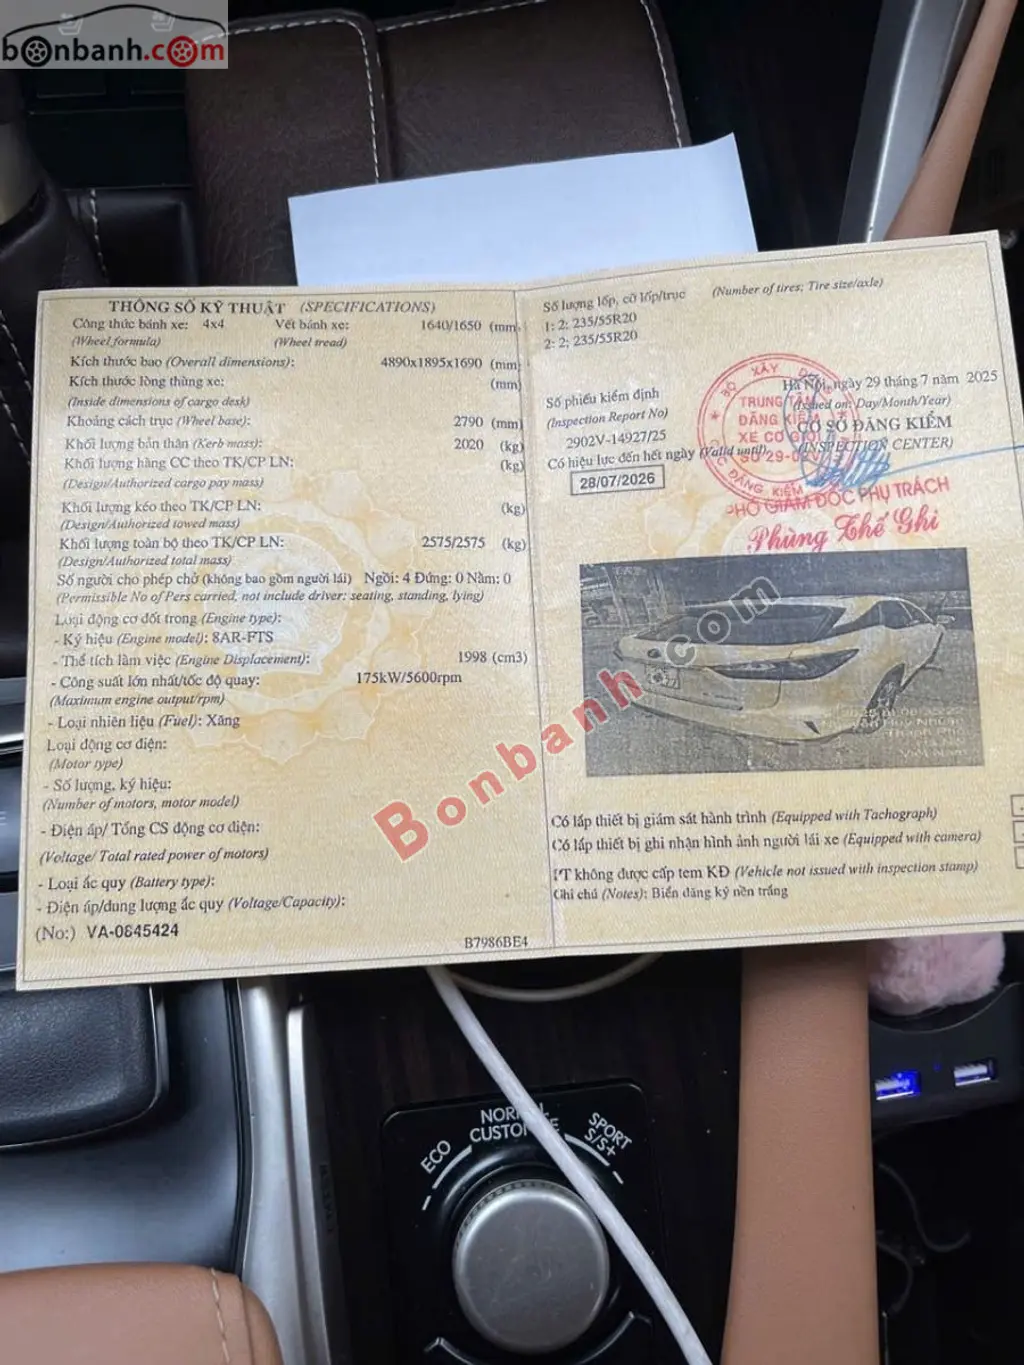 bonbanh.com
THÔNG SỐ KỸ THUẬT (SPECIFICATIONS)
Công thức bánh xe: 4x4 Vết bánh xe: 1640/1650 (mm)
(Wheel formula) (Wheel tread)
Kích thước bao (Overall dimensions): 4890x1895x1690 (mm)
Kích thước lòng thùng xe: (mm)
(Inside dimensions of cargo desk)
Khoảng cách trục (Wheel base): 2790 (mm)
Khối lượng bản thân (Kerb mass): 2020 (kg)
Khối lượng hàng CC theo TK/CP LN: (kg)
(Design/Authorized cargo pay mass)
Khối lượng kéo theo TK/CP LN: (kg)
(Design/Authorized towed mass)
Khối lượng toàn bộ theo TK/CP LN: 2575/2575 (kg)
(Design/Authorized total mass)
Số người cho phép chở (không bao gồm người lái) Ngồi: 4 Đứng: 0 Nằm: 0
(Permissible No of Pers carried, not include driver: seating, standing, lying)
Loại động cơ đốt trong (Engine type):
- Ký hiệu (Engine model): 8AR-FTS
- Thể tích làm việc (Engine Displacement): 1998 (cm3)
- Công suất lớn nhất/tốc độ quay: 175kW/5600rpm
(Maximum engine output/rpm)
- Loại nhiên liệu (Fuel): Xăng
Loại động cơ điện:
(Motor type)
- Số lượng, ký hiệu:
(Number of motors, motor model)
- Điện áp/ Tổng CS động cơ điện:
(Voltage/ Total rated power of motors)
- Loại ắc quy (Battery type):
- Điện áp/dung lượng ắc quy (Voltage/Capacity):
(No:) VA-0845424
B7986BE4
Số lượng lốp, cỡ lốp/trục (Number of tires; Tire size/axle)
1: 2; 235/55R20
2: 2; 235/55R20
Hà Nội, ngày 29 tháng 7 năm 2025
(Issued on: Day/Month/Year)
Số phiếu kiểm định
(Inspection Report No)
2902V-14927/25
CƠ SỞ ĐĂNG KIỂM
(INSPECTION CENTER)
Có hiệu lực đến hết ngày (Valid until)
28/07/2026
BỘ XÂY
TRUNG TÂM
ĐĂNG KIỂM
XE CƠ GIỚI
SỐ 29-02V
CỤC ĐĂNG KIỂM
PHÓ GIÁM ĐỐC PHỤ TRÁCH
Phùng Thế Ghi
Có lắp thiết bị giám sát hành trình (Equipped with Tachograph)
Có lắp thiết bị ghi nhận hình ảnh người lái xe (Equipped with camera)
PT không được cấp tem KĐ (Vehicle not issued with inspection stamp)
Ghi chú (Notes): Biển đăng ký nền trắng
Bonbanh.com
ECO
NORMAL
CUSTOMIZE
SPORT
S/S+